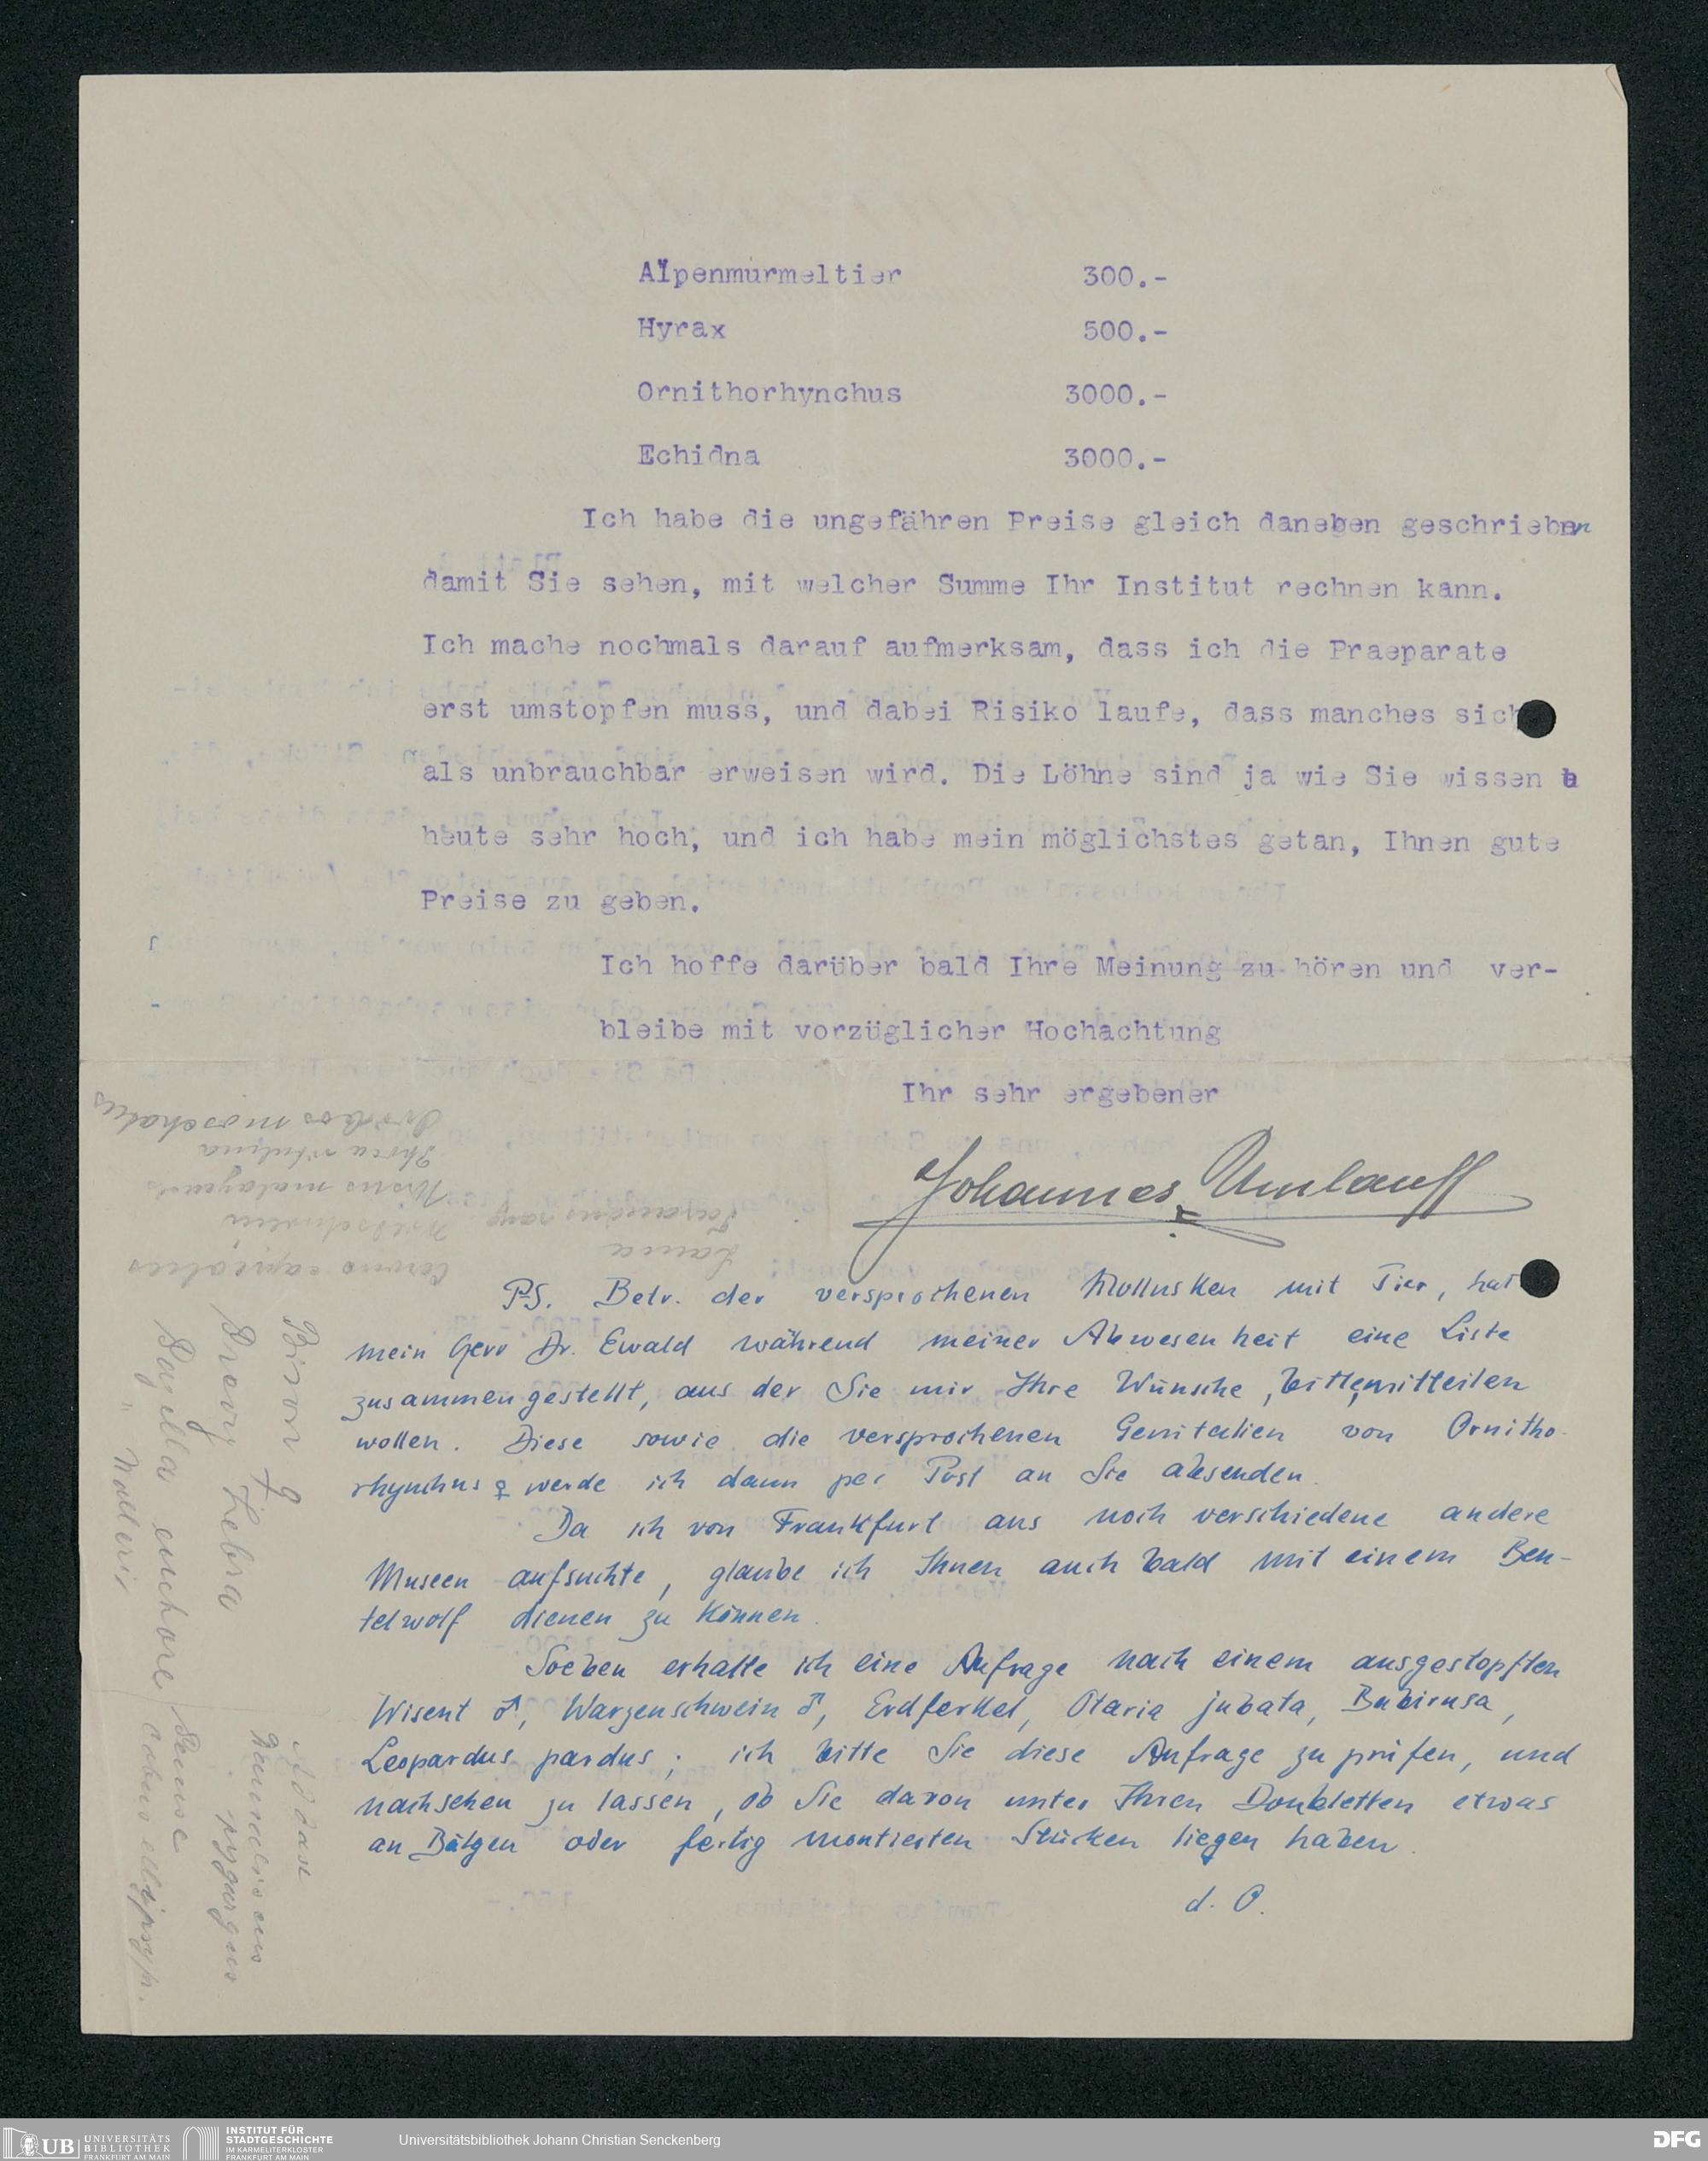 Alpenmurmeltier 300.-
Hyrax 500.-
Ornithorhynchus 3000.-
Echidna 3000.-
Ich habe die ungefähren Preise gleich daneben geschrieben
damit Sie sehen, mit welcher Summe Ihr Institut rechnen kann.
Ich mache nochmals darauf aufmerksam, dass ich die Praeparate
erst umstopfen muss, und dabei Risiko laufe, dass manches sich
als unbrauchbar erweisen wird. Die Löhne sind ja wie Sie wissen
heute sehr hoch, und ich habe mein möglichstes getan, Ihnen gute
Preise zu geben.
Ich hoffe darüber bald Ihre Meinung zu hören und ver-
bleibe mit vorzüglicher Hochachtung
Ihr sehr ergebener
Johannes Umlauff
P.S. Betr. der versprochenen Mollusken mit Tier, hat
mein Herr Dr. Ewald während meiner Abwesenheit eine Liste
zusammengestellt, aus der Sie mir Ihre Wünsche, bitte, mitteilen
wollen. Diese sowie die versprochenen Genitalien von Ornitho-
rhynchus ♀ werde ich dann per Post an Sie absenden.
Da ich von Frankfurt aus noch verschiedene andere
Museen aufsuchte, glaube ich Ihnen auch bald mit einem Beu-
telwolf dienen zu können.
Soeben erhalte ich eine Anfrage nach einem ausgestopften
Wisent ♂, Warzenschwein ♂, Erdferkel, Otaria jubata, Babirusa,
Leopardus pardus; ich bitte Sie diese Anfrage zu prüfen, und
nachsehen zu lassen, ob Sie davon unter Ihren Doubletten etwas
an Bälgen oder fertig montierten Stücken liegen haben.
d. O.
Ovibos moschatus
Phoca vitulina
Ursus malayanus
Wildschwein
Tarandus rang
Lama
Bison ♀
Zebra
Gemse
Addax
pygargus
UB UNIVERSITÄTS
BIBLIOTHEK
FRANKFURT AM MAIN
INSTITUT FÜR
STADTGESCHICHTE
IM KARMELITERKLOSTER
FRANKFURT AM MAIN
Universitätsbibliothek Johann Christian Senckenberg
DFG